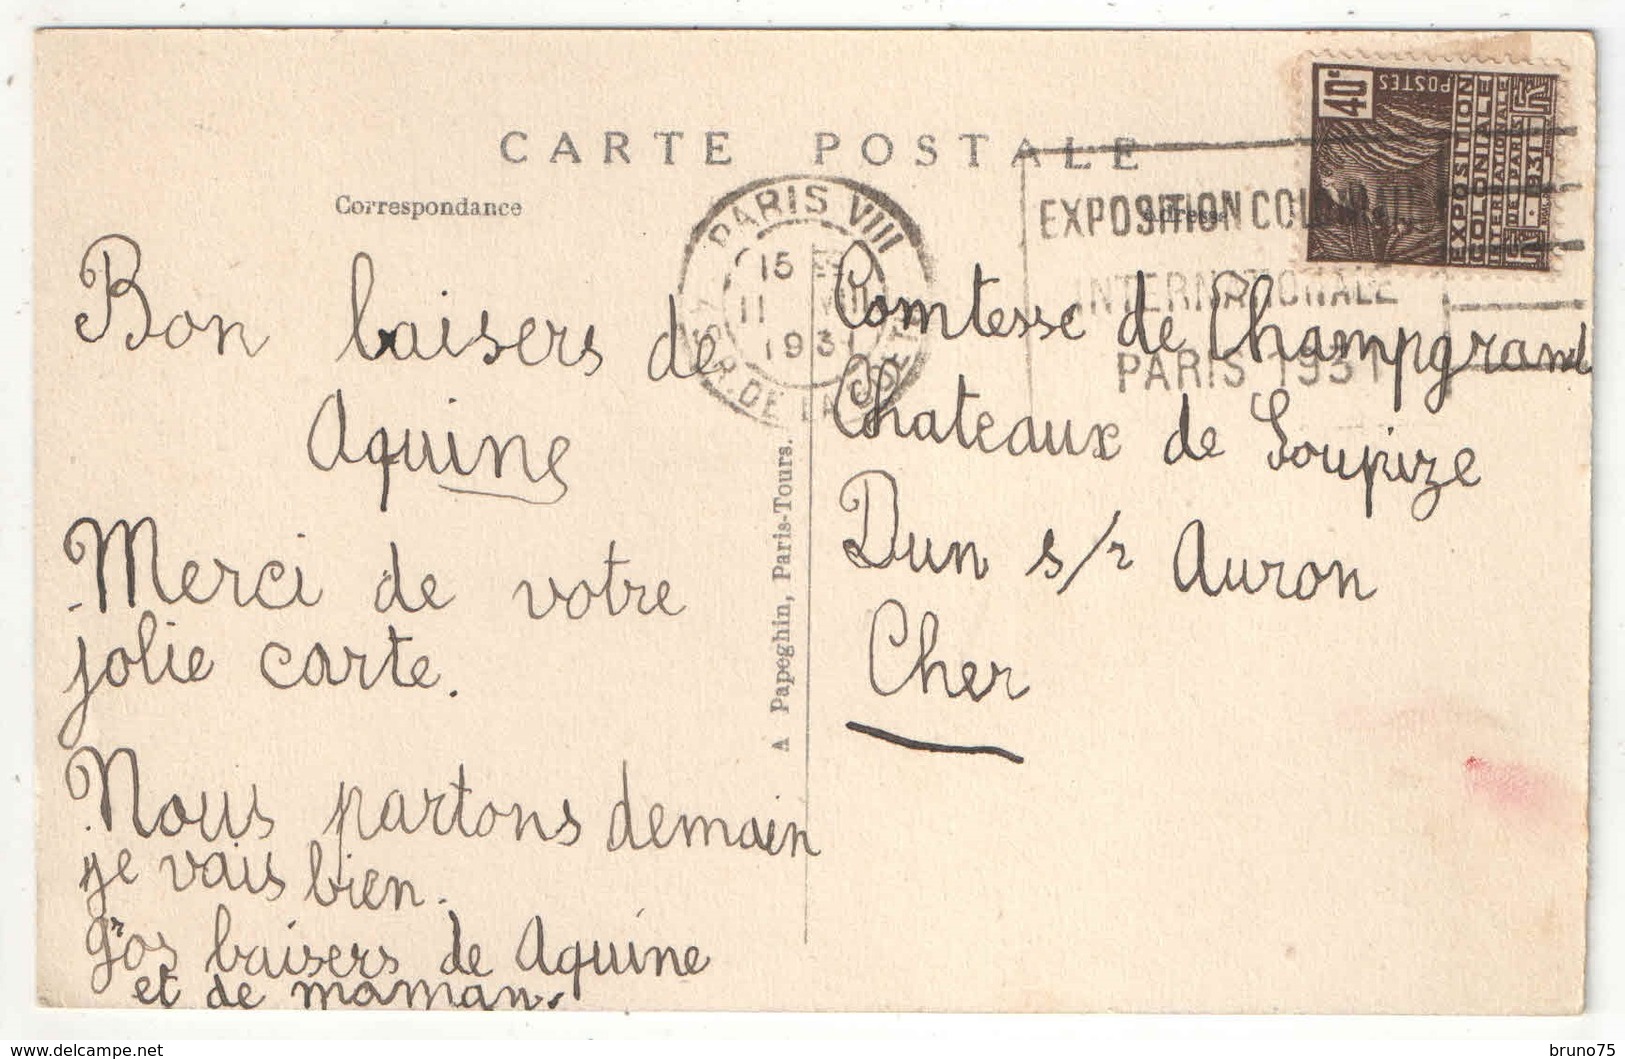 CARTE POSTALE
Correspondance
Adresse
40c
POSTES
EXPOSITION
COLONIALE
INTERNATIONALE
DE PARIS
1931
PARIS VIII
15
11 VIII
1931
EXPOSITION COLONIALE
INTERNATIONALE
PARIS 1931
Bon baisers de
Aquine
Merci de votre
jolie carte.
Nous partons demain
je vais bien.
gros baisers de Aquine
et de maman.
A Papeghin, Paris-Tours.
Comtesse de Champgrand
Chateaux de Loupize
Dun s/r Auron
Cher
www.delcampe.net
bruno75